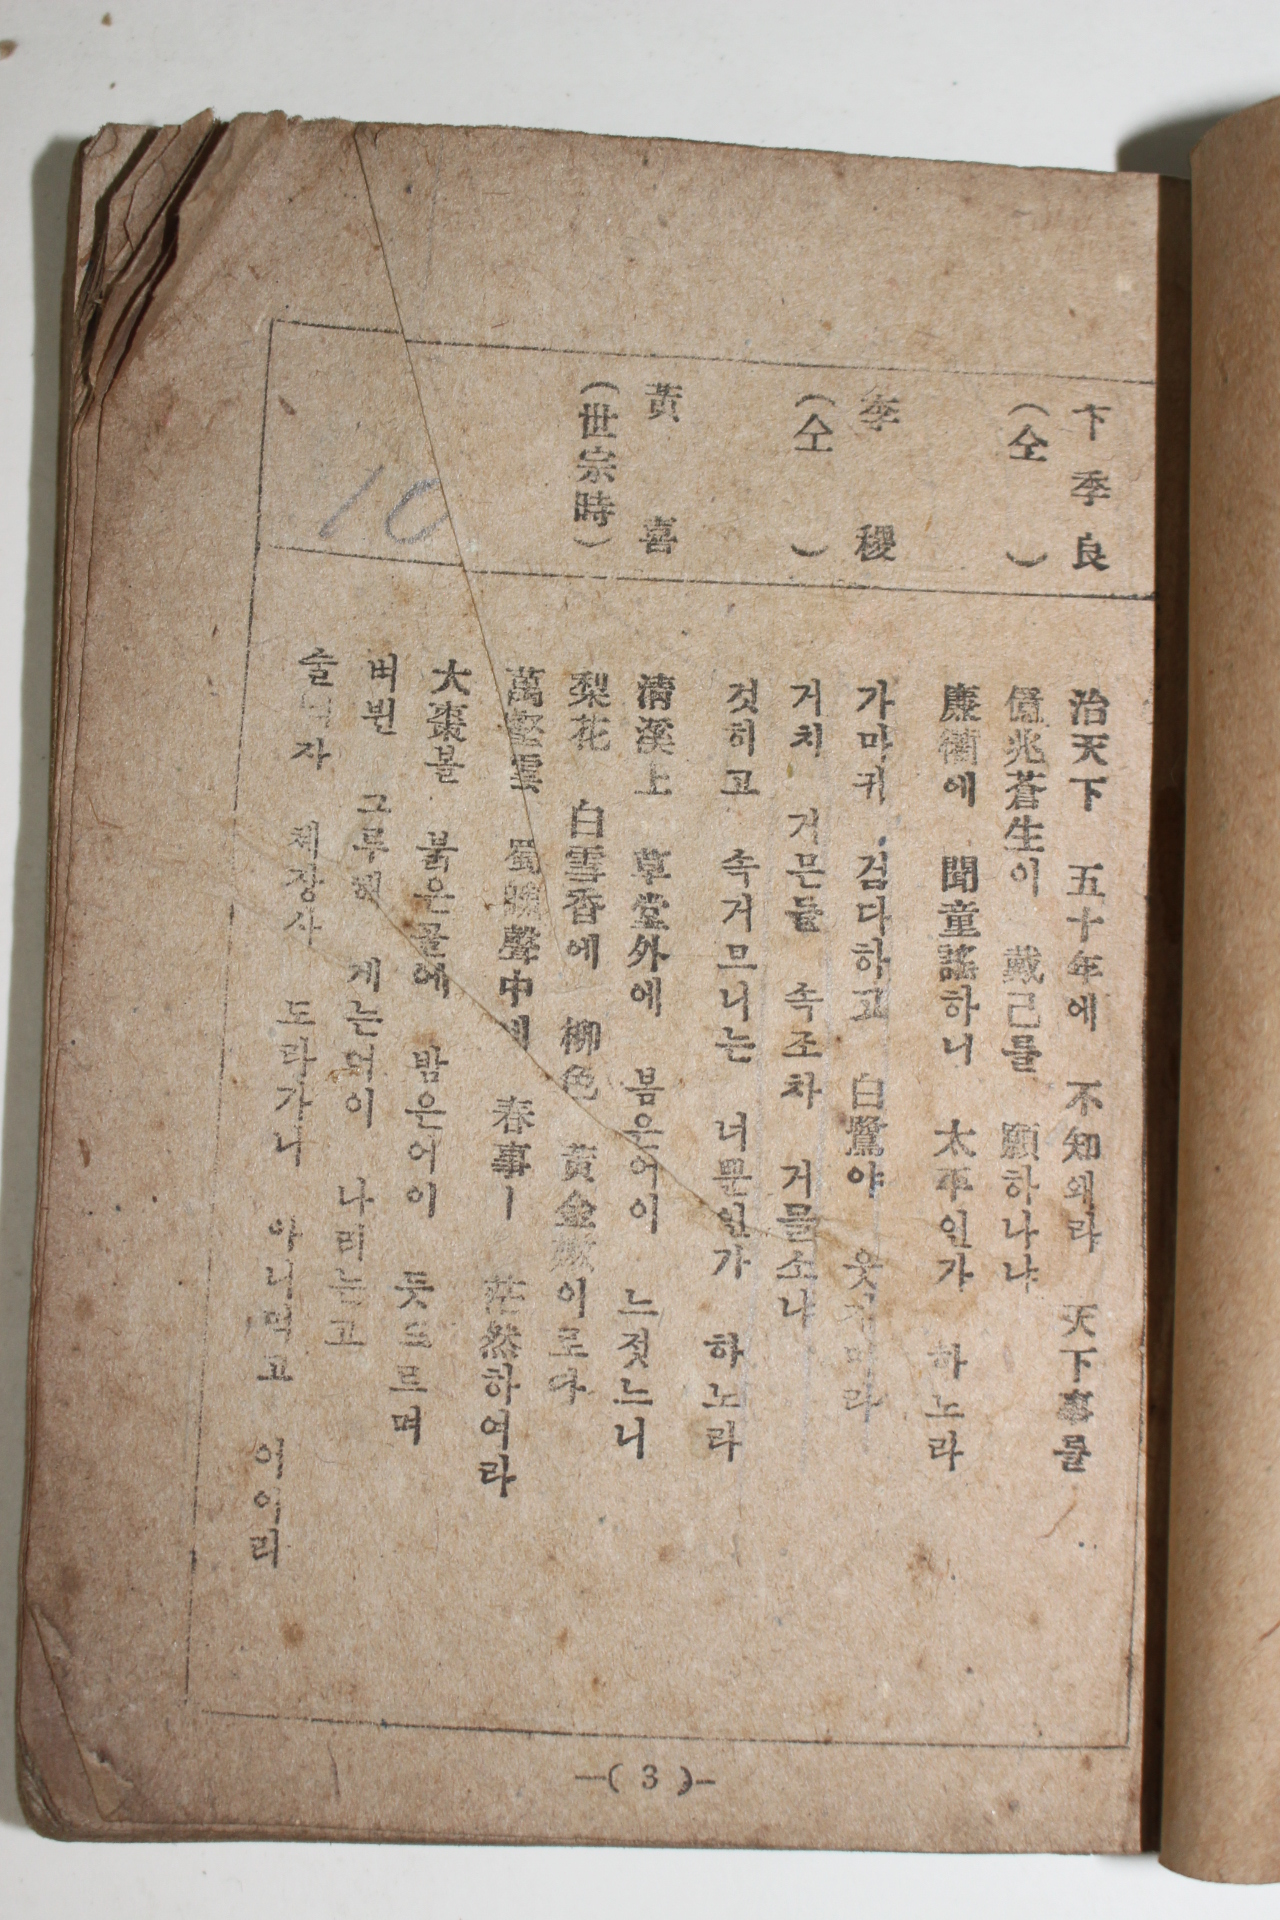 卞季良
(仝)
治天下 五十年에 不知왜라 天下事를
億兆蒼生이 戴己를 願하나냐
康衢에 聞童謠하니 太平인가 하노라
李稷
(仝)
가마귀 검다하고 白鷺야 웃지마라
거치 거믄들 속조차 거믈소냐
것히고 속거므니는 너뿐인가 하노라
黃喜
(世宗時)
清溪上 草堂外에 봄은어이 느젓느니
梨花 白雪香에 柳色 黃金嫩이로다
萬壑雲 蜀魄聲中에 春事ㅣ 茫然하여라
大棗볼 붉은골에 밤은어이 듯드르며
벼뷘 그루헤 게는어이 나리는고
술익자 체장사 도라가니 아니먹고 어이리
10
—( 3 )—